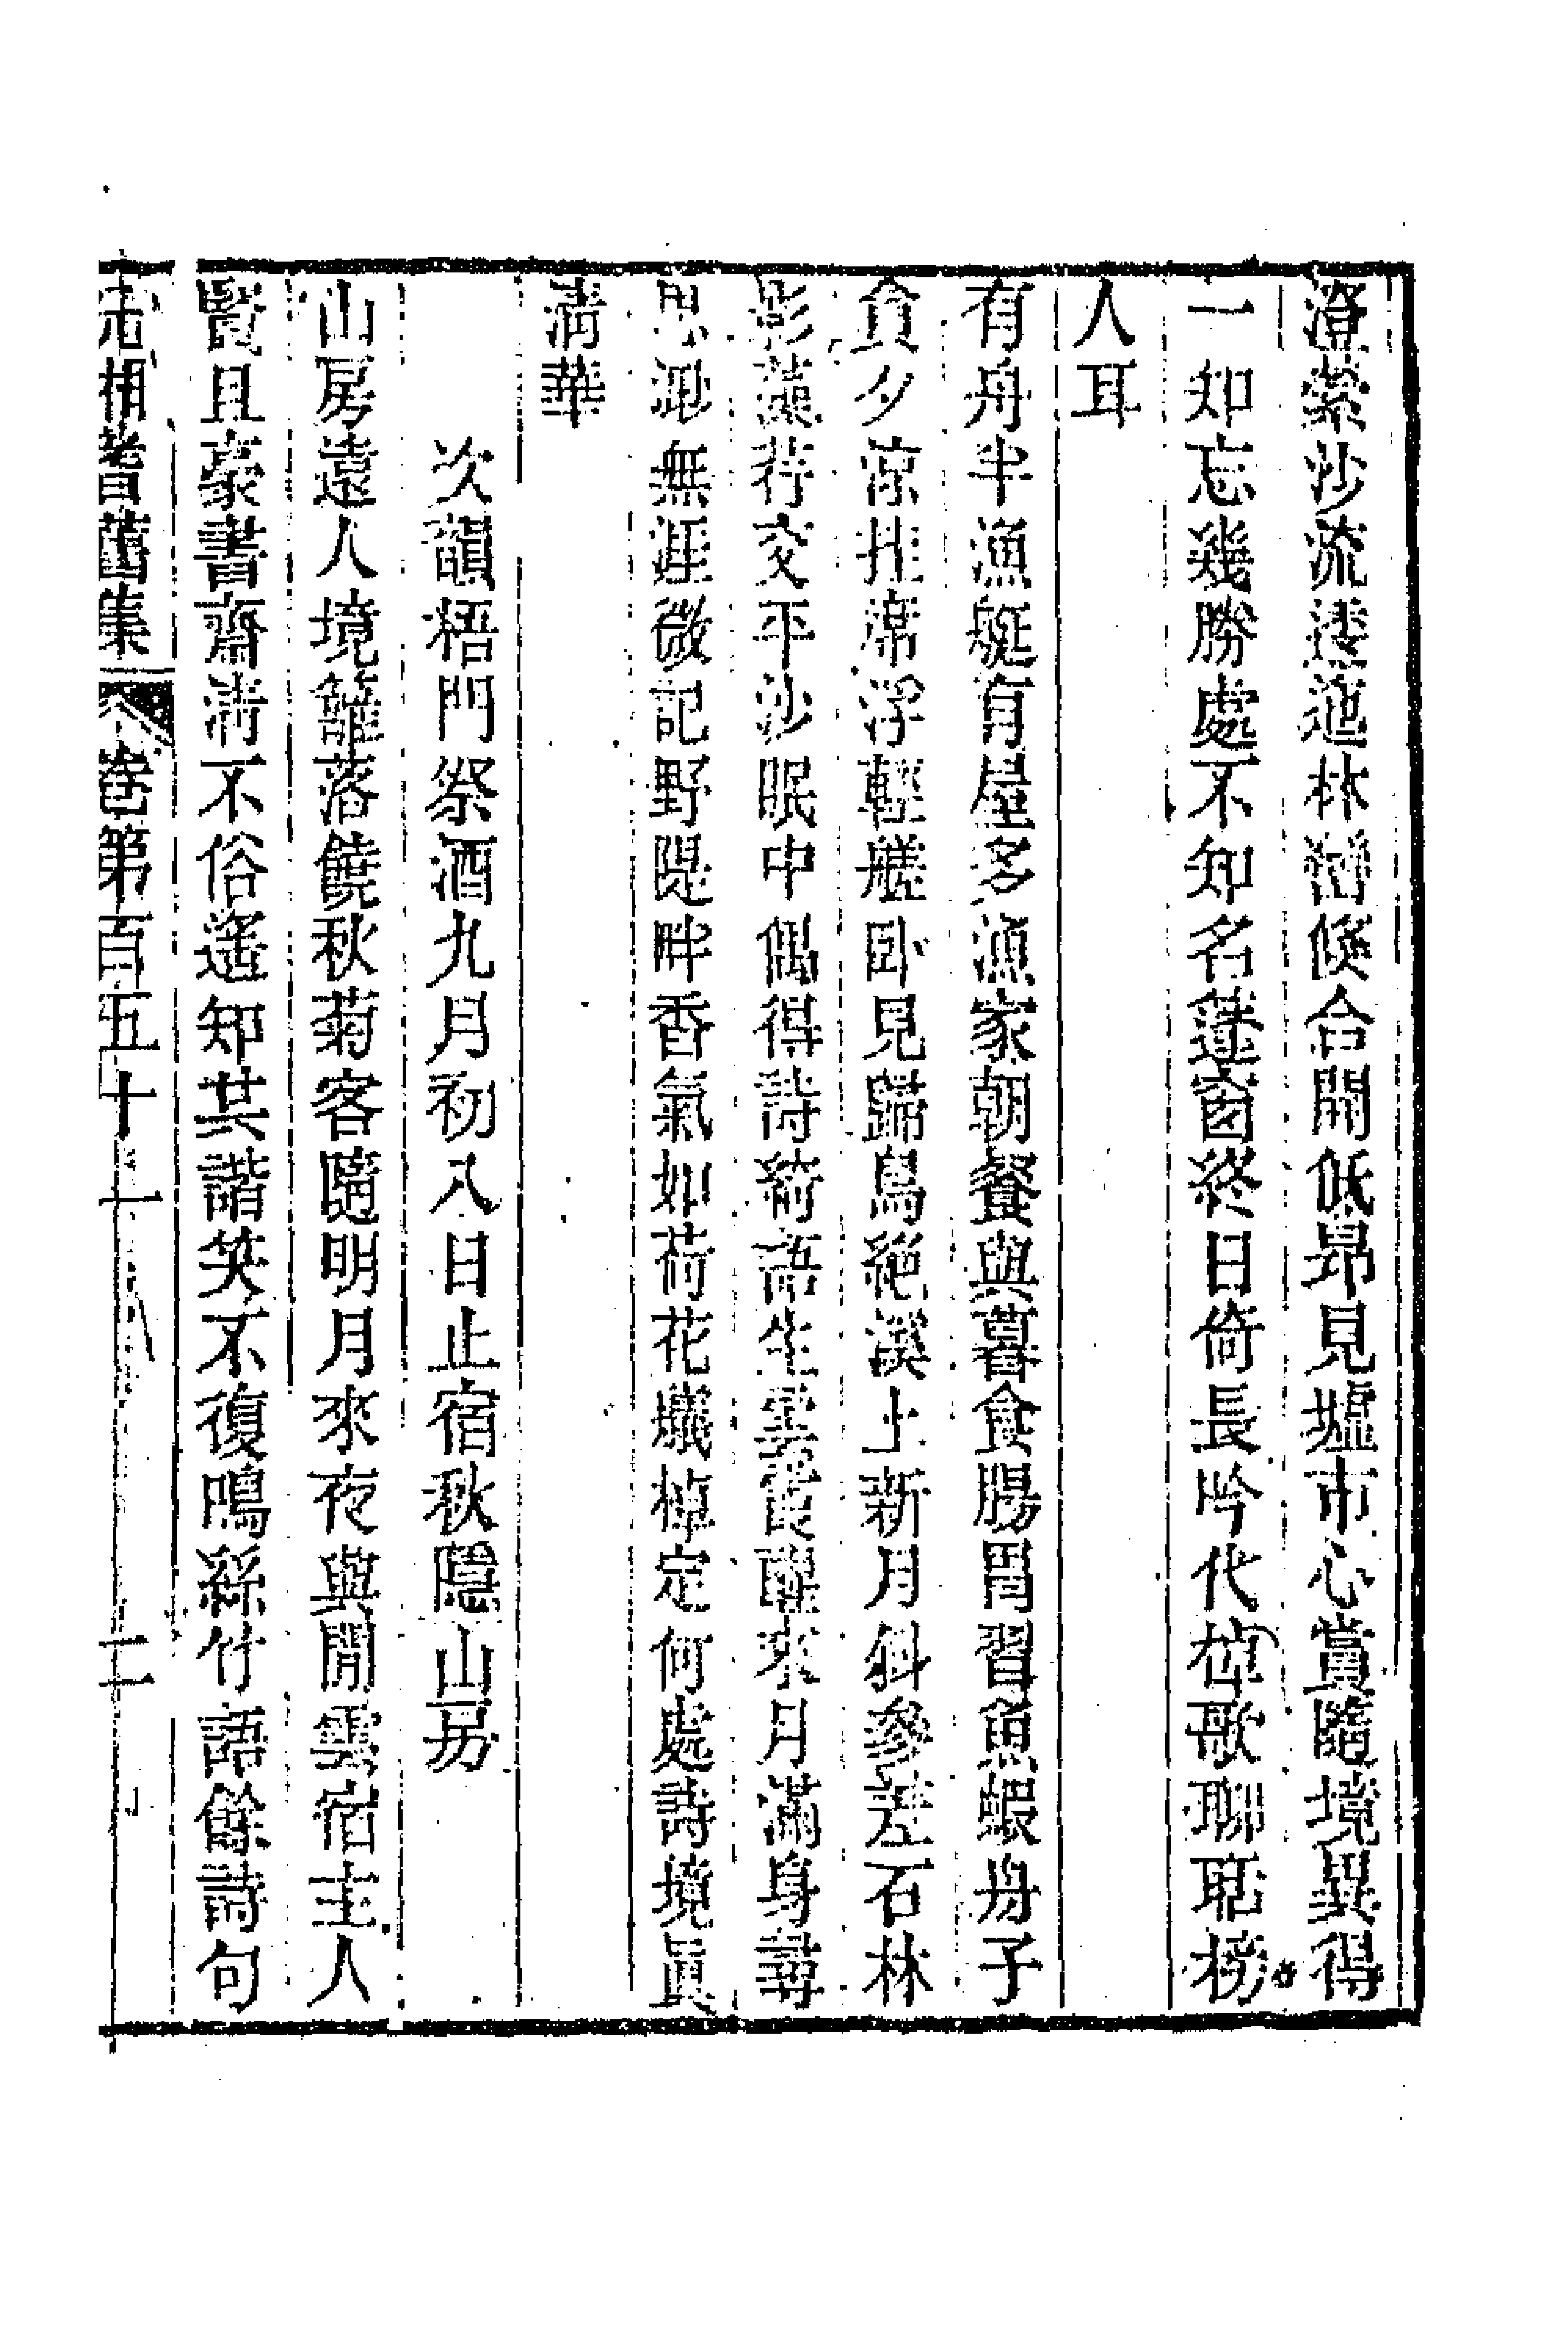 澄縈沙流逶迤林巒倏合開低昂見墟市心賞隨境異得
一知忘幾勝處不知名蓬窗終日倚長吟代棹歌聊聒榜
人耳
有舟半漁艇有屋多漁家朝餐與暮食腸胃習魚蝦舟子
貪夕涼挂席浮輕艖卧見歸鳥絕溪上新月斜參差石林
影藻荇交平沙眠中偶得詩綺語生雲霞醒來月滿身尋
思渺無涯微記野隄畔香氣如荷花艤棹定何處詩境眞
淸華
次韻梧門祭酒九月初八日止宿秋隱山房
山房遠人境籬落饒秋菊客隨明月來夜與閒雲宿主人
賢且豪書齋淸不俗遙知共諧笑不復鳴絲竹語餘詩句
沅湘耆舊集 卷第百五十一 二